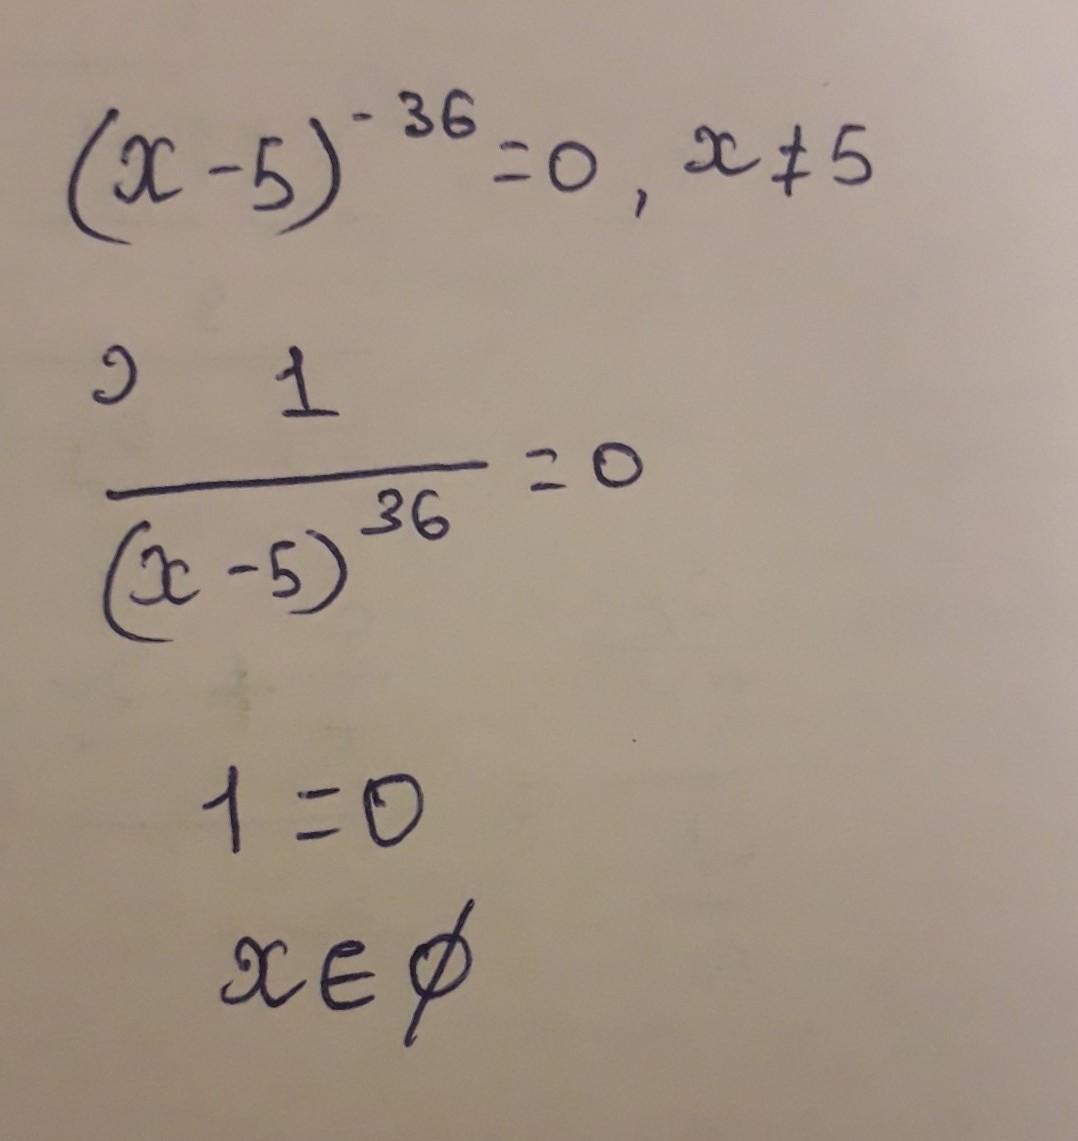 (x-5)^-36 =0, x≠5
1
(x-5)^36 =0
1=0
x∈∅